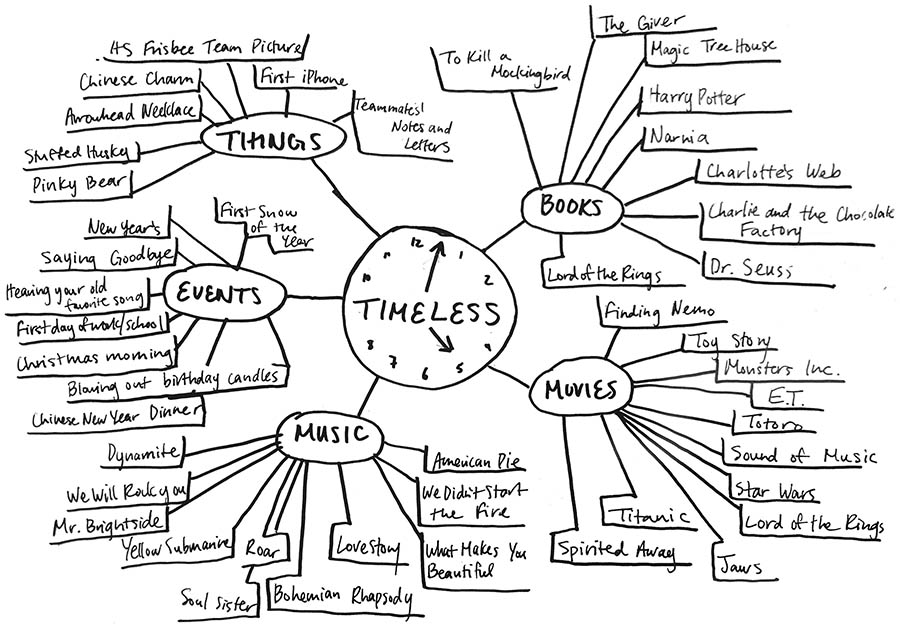 TIMELESS
12
1
2
4
5
6
7
8
10
11
THINGS
HS Frisbee Team Picture
Chinese Charm
First iPhone
Arrowhead Necklace
Teammates'
Notes and
Letters
Stuffed Husky
Pinky Bear
EVENTS
First Snow
of the
Year
New Year's
Saying Goodbye
Hearing your old
favorite song
First day of work/school
Christmas morning
Blowing out birthday candles
Chinese New Year Dinner
MUSIC
Dynamite
We Will Rock you
Mr. Brightside
Yellow Submarine
Roar
Soul Sister
Bohemian Rhapsody
Love Story
What Makes You
Beautiful
We Didn't Start
the Fire
American Pie
BOOKS
To Kill a
Mockingbird
The Giver
Magic Tree House
Harry Potter
Narnia
Charlotte's Web
Charlie and the Chocolate
Factory
Dr. Seuss
Lord of the Rings
MOVIES
Finding Nemo
Toy Story
Monsters Inc.
E.T.
Totoro
Sound of Music
Star Wars
Lord of the Rings
Jaws
Titanic
Spirited Away